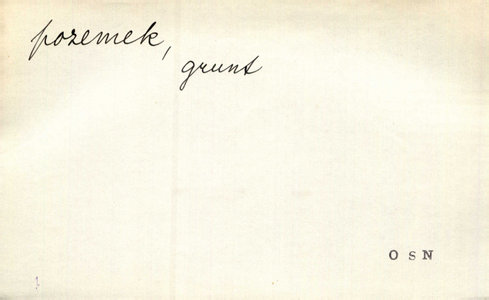 pozemek,
grunt
O S N